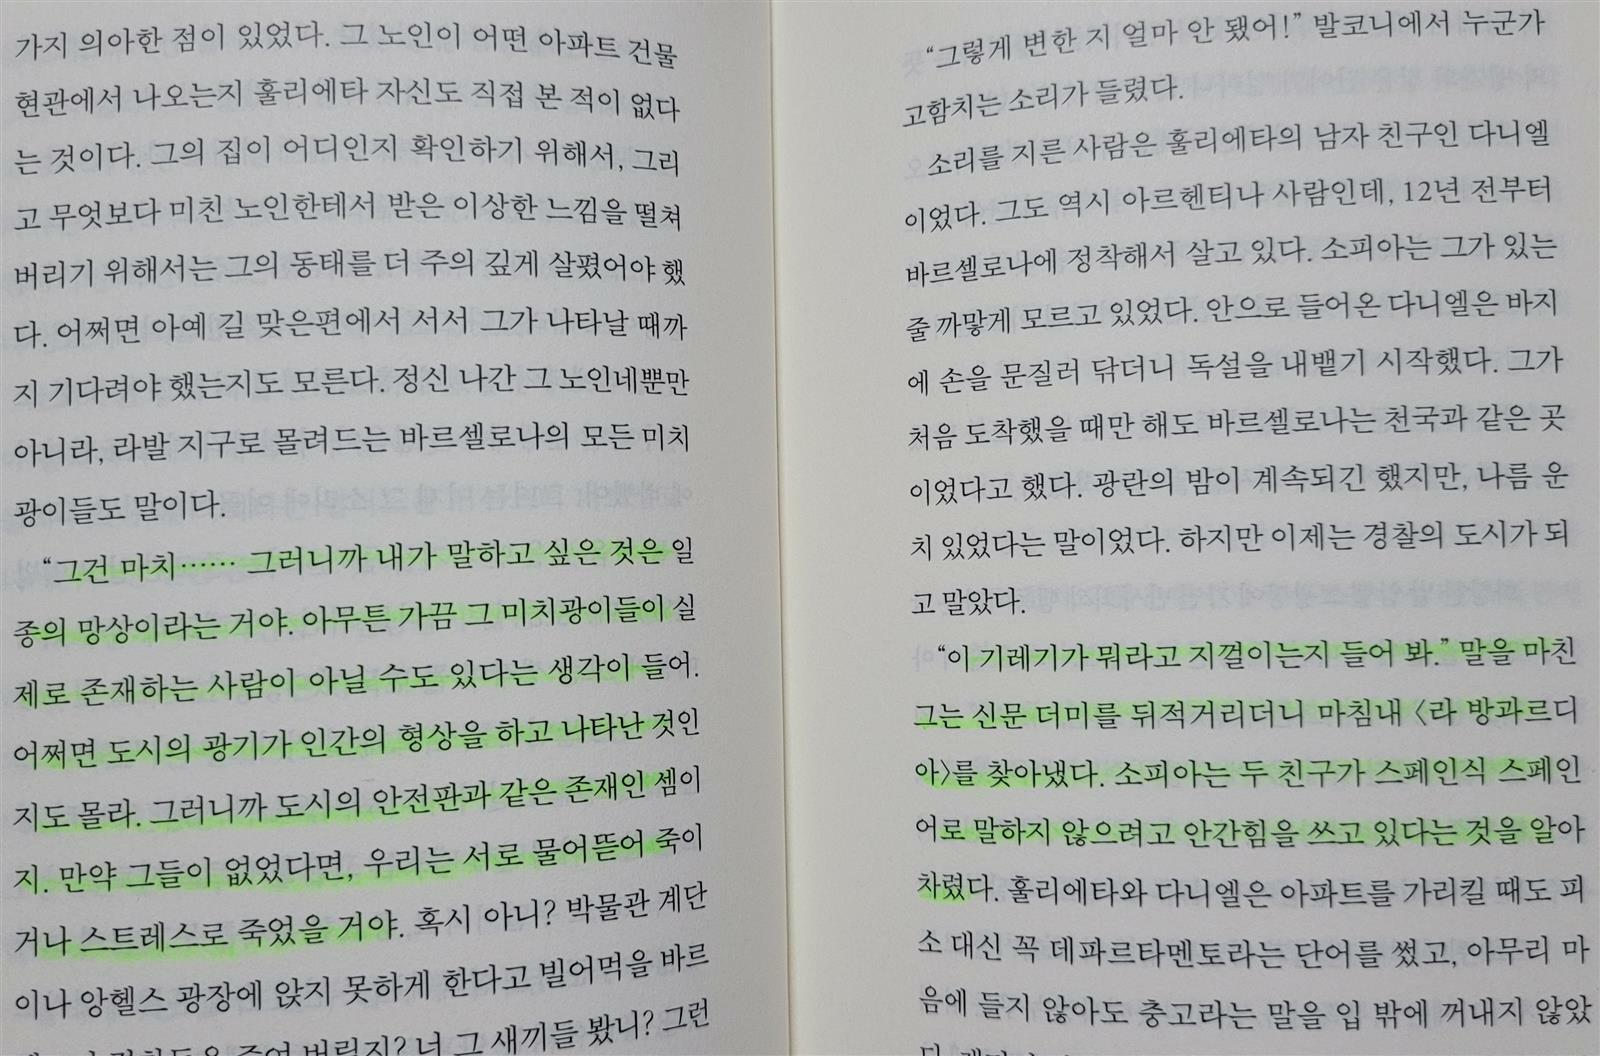 가지 의아한 점이 있었다. 그 노인이 어떤 아파트 건물
현관에서 나오는지 훌리에타 자신도 직접 본 적이 없다
는 것이다. 그의 집이 어디인지 확인하기 위해서, 그리
고 무엇보다 미친 노인한테서 받은 이상한 느낌을 떨쳐
버리기 위해서는 그의 동태를 더 주의 깊게 살폈어야 했
다. 어쩌면 아예 길 맞은편에서 서서 그가 나타날 때까
지 기다려야 했는지도 모른다. 정신 나간 그 노인네뿐만
아니라, 라발 지구로 몰려드는 바르셀로나의 모든 미치
광이들도 말이다.
“그건 마치…… 그러니까 내가 말하고 싶은 것은 일
종의 망상이라는 거야. 아무튼 가끔 그 미치광이들이 실
제로 존재하는 사람이 아닐 수도 있다는 생각이 들어.
어쩌면 도시의 광기가 인간의 형상을 하고 나타난 것인
지도 몰라. 그러니까 도시의 안전판과 같은 존재인 셈이
지. 만약 그들이 없었다면, 우리는 서로 물어뜯어 죽이
거나 스트레스로 죽었을 거야. 혹시 아니? 박물관 계단
이나 앙헬스 광장에 앉지 못하게 한다고 빌어먹을 바르
죽여 버릴지? 너 그 새끼들 봤니? 그런
“그렇게 변한 지 얼마 안 됐어!” 발코니에서 누군가
고함치는 소리가 들렸다.
소리를 지른 사람은 훌리에타의 남자 친구인 다니엘
이었다. 그도 역시 아르헨티나 사람인데, 12년 전부터
바르셀로나에 정착해서 살고 있다. 소피아는 그가 있는
줄 까맣게 모르고 있었다. 안으로 들어온 다니엘은 바지
에 손을 문질러 닦더니 독설을 내뱉기 시작했다. 그가
처음 도착했을 때만 해도 바르셀로나는 천국과 같은 곳
이었다고 했다. 광란의 밤이 계속되긴 했지만, 나름 운
치 있었다는 말이었다. 하지만 이제는 경찰의 도시가 되
고 말았다.
“이 기레기가 뭐라고 지껄이는지 들어 봐.” 말을 마친
그는 신문 더미를 뒤적거리더니 마침내 〈라 방과르디
아〉를 찾아냈다. 소피아는 두 친구가 스페인식 스페인
어로 말하지 않으려고 안간힘을 쓰고 있다는 것을 알아
차렸다. 훌리에타와 다니엘은 아파트를 가리킬 때도 피
소 대신 꼭 데파르타멘토라는 단어를 썼고, 아무리 마
음에 들지 않아도 충고라는 말을 입 밖에 꺼내지 않았